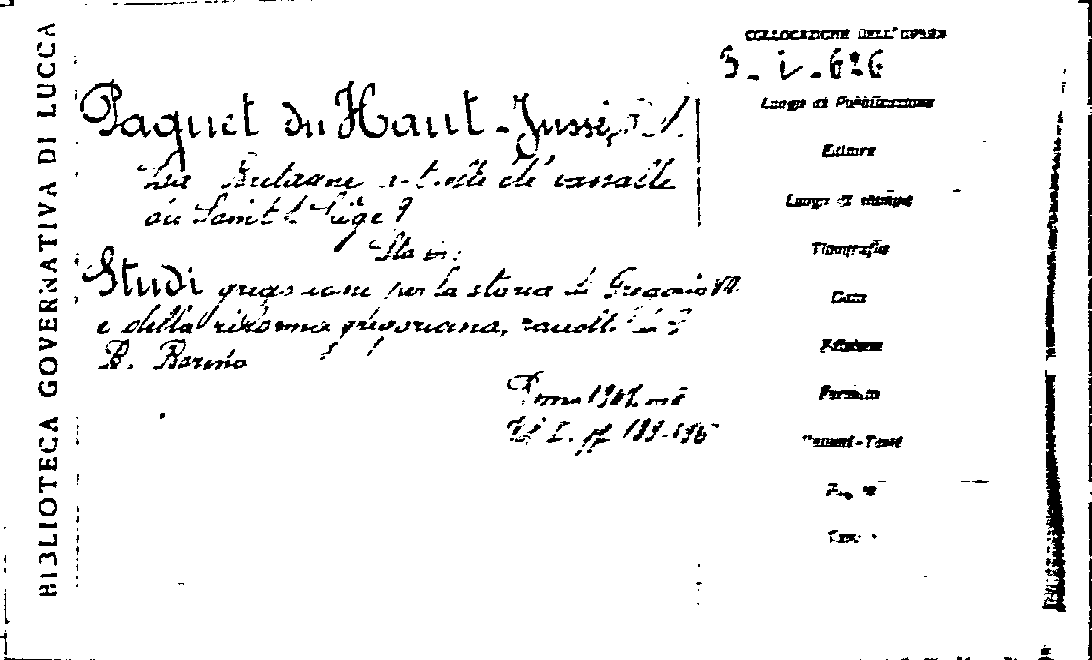 BIBLIOTECA GOVERNATIVA DI LUCCA
COLLOCAZIONE DELL'OPERA
Paquet du Haut-Jussé,
Luogo di Pubblicazione
La Bretagne a-t-elle été vassalle
Editore
du Saint Siège?
Luogo di stampa
Sta in:
Tipografia
Studi gregoriani per la storia di Gregorio VII
Data
e della riforma gregoriana, raccolti da
Edizione
B. Borino
Formato
Roma
Vol I. pp 189-196
Volumi-Tomi
Pagine